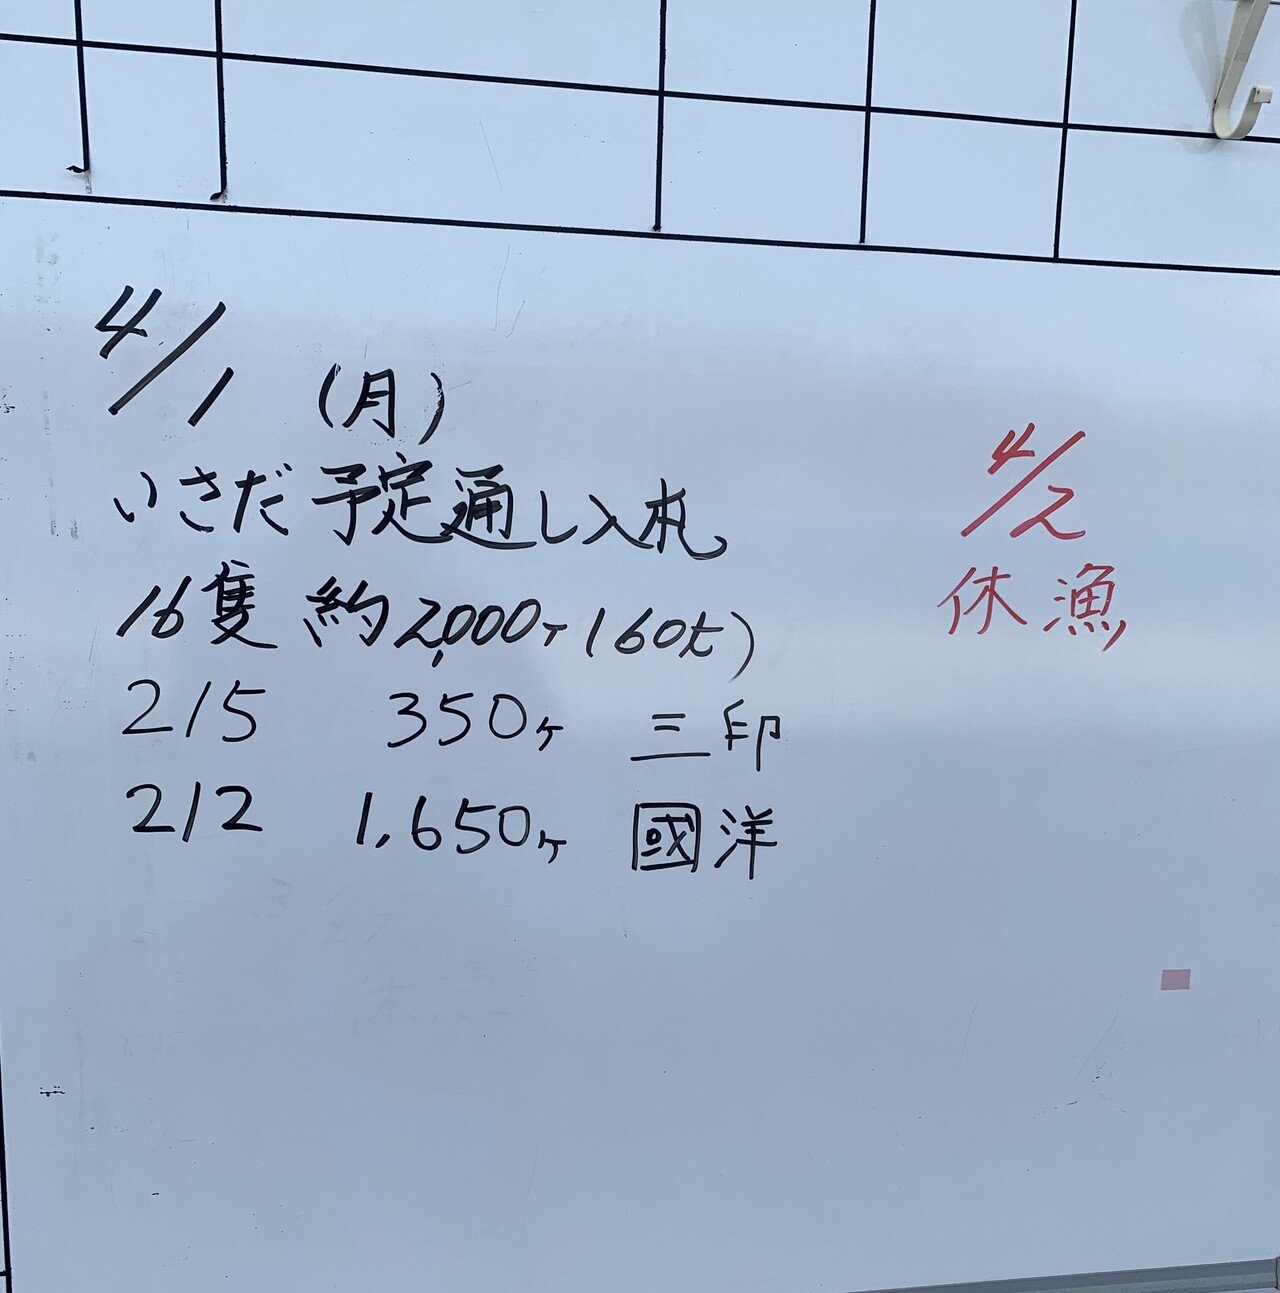 4/1 (月)
いさだ 予定通し入札
16隻 約2,000ヶ(60t)
215 350ヶ 三印
212 1,650ヶ 國洋
4/2
休漁